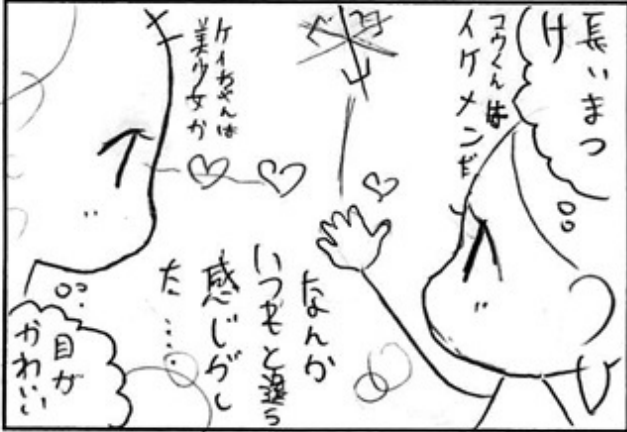 長いまつ
け
コウくんは
イケメンだ
ケイちゃんは
美少女か
なんか
いつもと違う
感じがし
た……
目が
かわいい